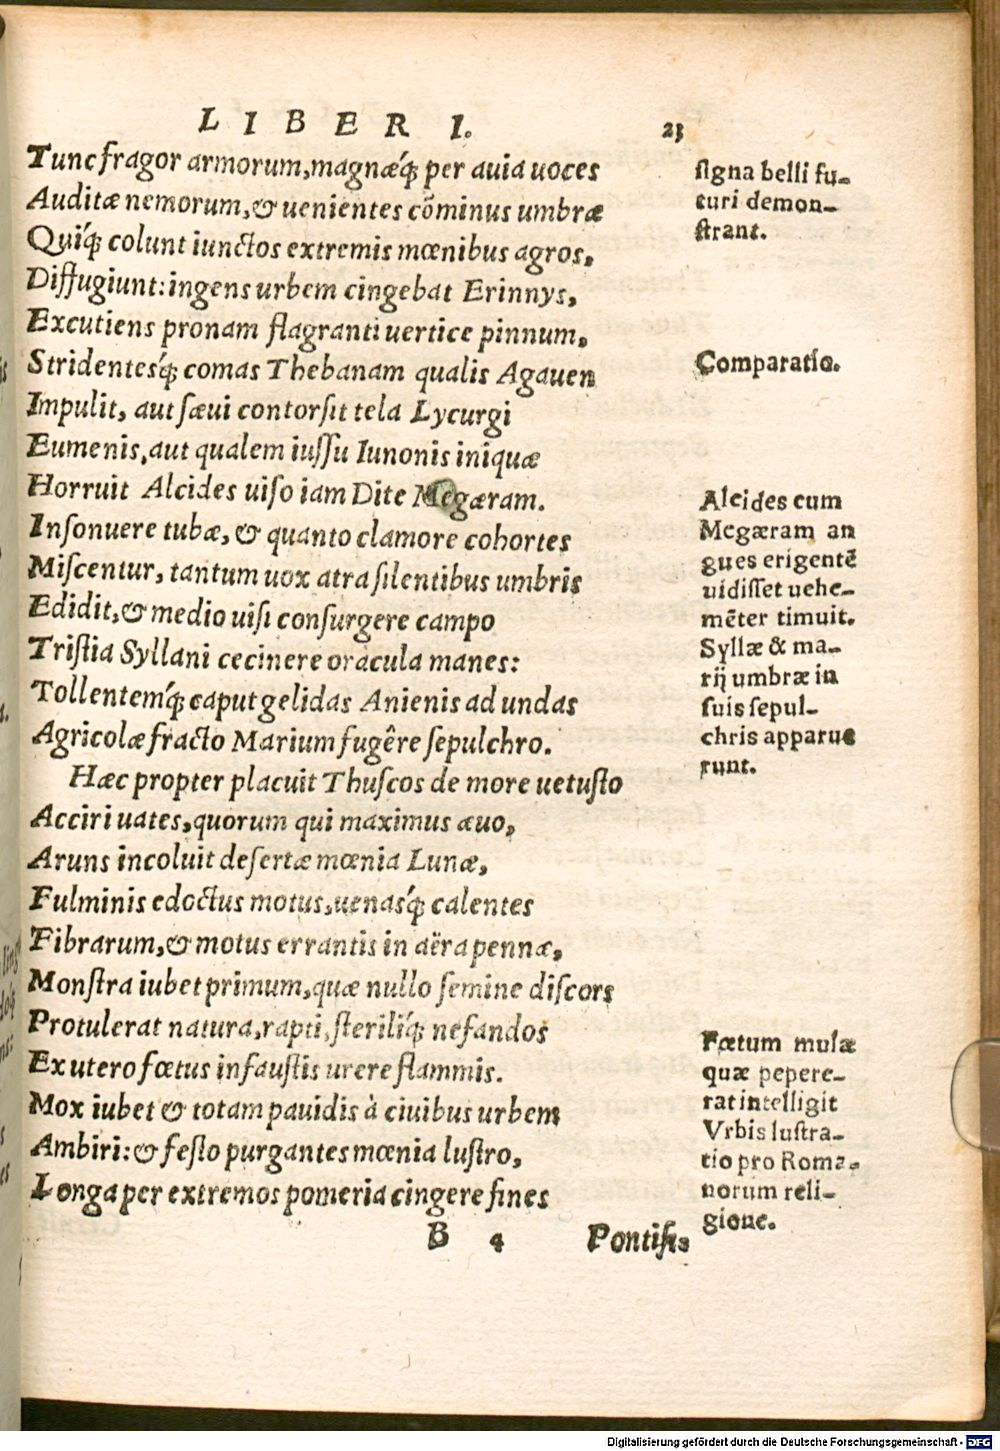 LIBER I. 23
Tunc fragor armorum, magnæq́ꝫ per auia uoces
Auditæ nemorum, & uenientes cõminus umbræ
Quiq́ꝫ colunt iunctos extremis mœnibus agros,
Diffugiunt: ingens urbem cingebat Erinnys,
Excutiens pronam flagranti uertice pinnum,
Stridentesq́ꝫ comas Thebanam qualis Agauen
Impulit, aut sæui contorsit tela Lycurgi
Eumenis, aut qualem iussu Iunonis iniquæ
Horruit Alcides uiso iam Dite Megæram.
Insonuere tubæ, & quanto clamore cohortes
Miscentur, tantum uox atra silentibus umbris
Edidit, & medio uisi consurgere campo
Tristia Syllani cecinere oracula manes:
Tollentemq́ꝫ caput gelidas Anienis ad undas
Agricolæ fracto Marium fugêre sepulchro.
Hæc propter placuit Thuscos de more uetusto
Acciri uates, quorum qui maximus æuo,
Aruns incoluit desertæ mœnia Lunæ,
Fulminis edoctus motus, uenasq́ꝫ calentes
Fibrarum, & motus errantis in aëra pennæ,
Monstra iubet primum, quæ nullo semine discors
Protulerat natura, rapti, steriliq́ꝫ nefandos
Ex utero fœtus infaustis urere flammis.
Mox iubet & totam pauidis à ciuibus urbem
Ambiri: & festo purgantes mœnia lustro,
Longa per extremos pomeria cingere fines
B 4 Pontifi-
signa belli fu-
turi demon-
strant.
Comparatio.
Alcides cum
Megæram an
gues erigentẽ
uidisset uehe-
mẽter timuit.
Syllæ & ma-
rij umbræ in
suis sepul-
chris apparue
runt.
Fœtum mulæ
quæ pepere-
rat intelligit
Vrbis lustra-
tio pro Roma-
norum reli-
gione.
Digitalisierung gefördert durch die Deutsche Forschungsgemeinschaft - DFG